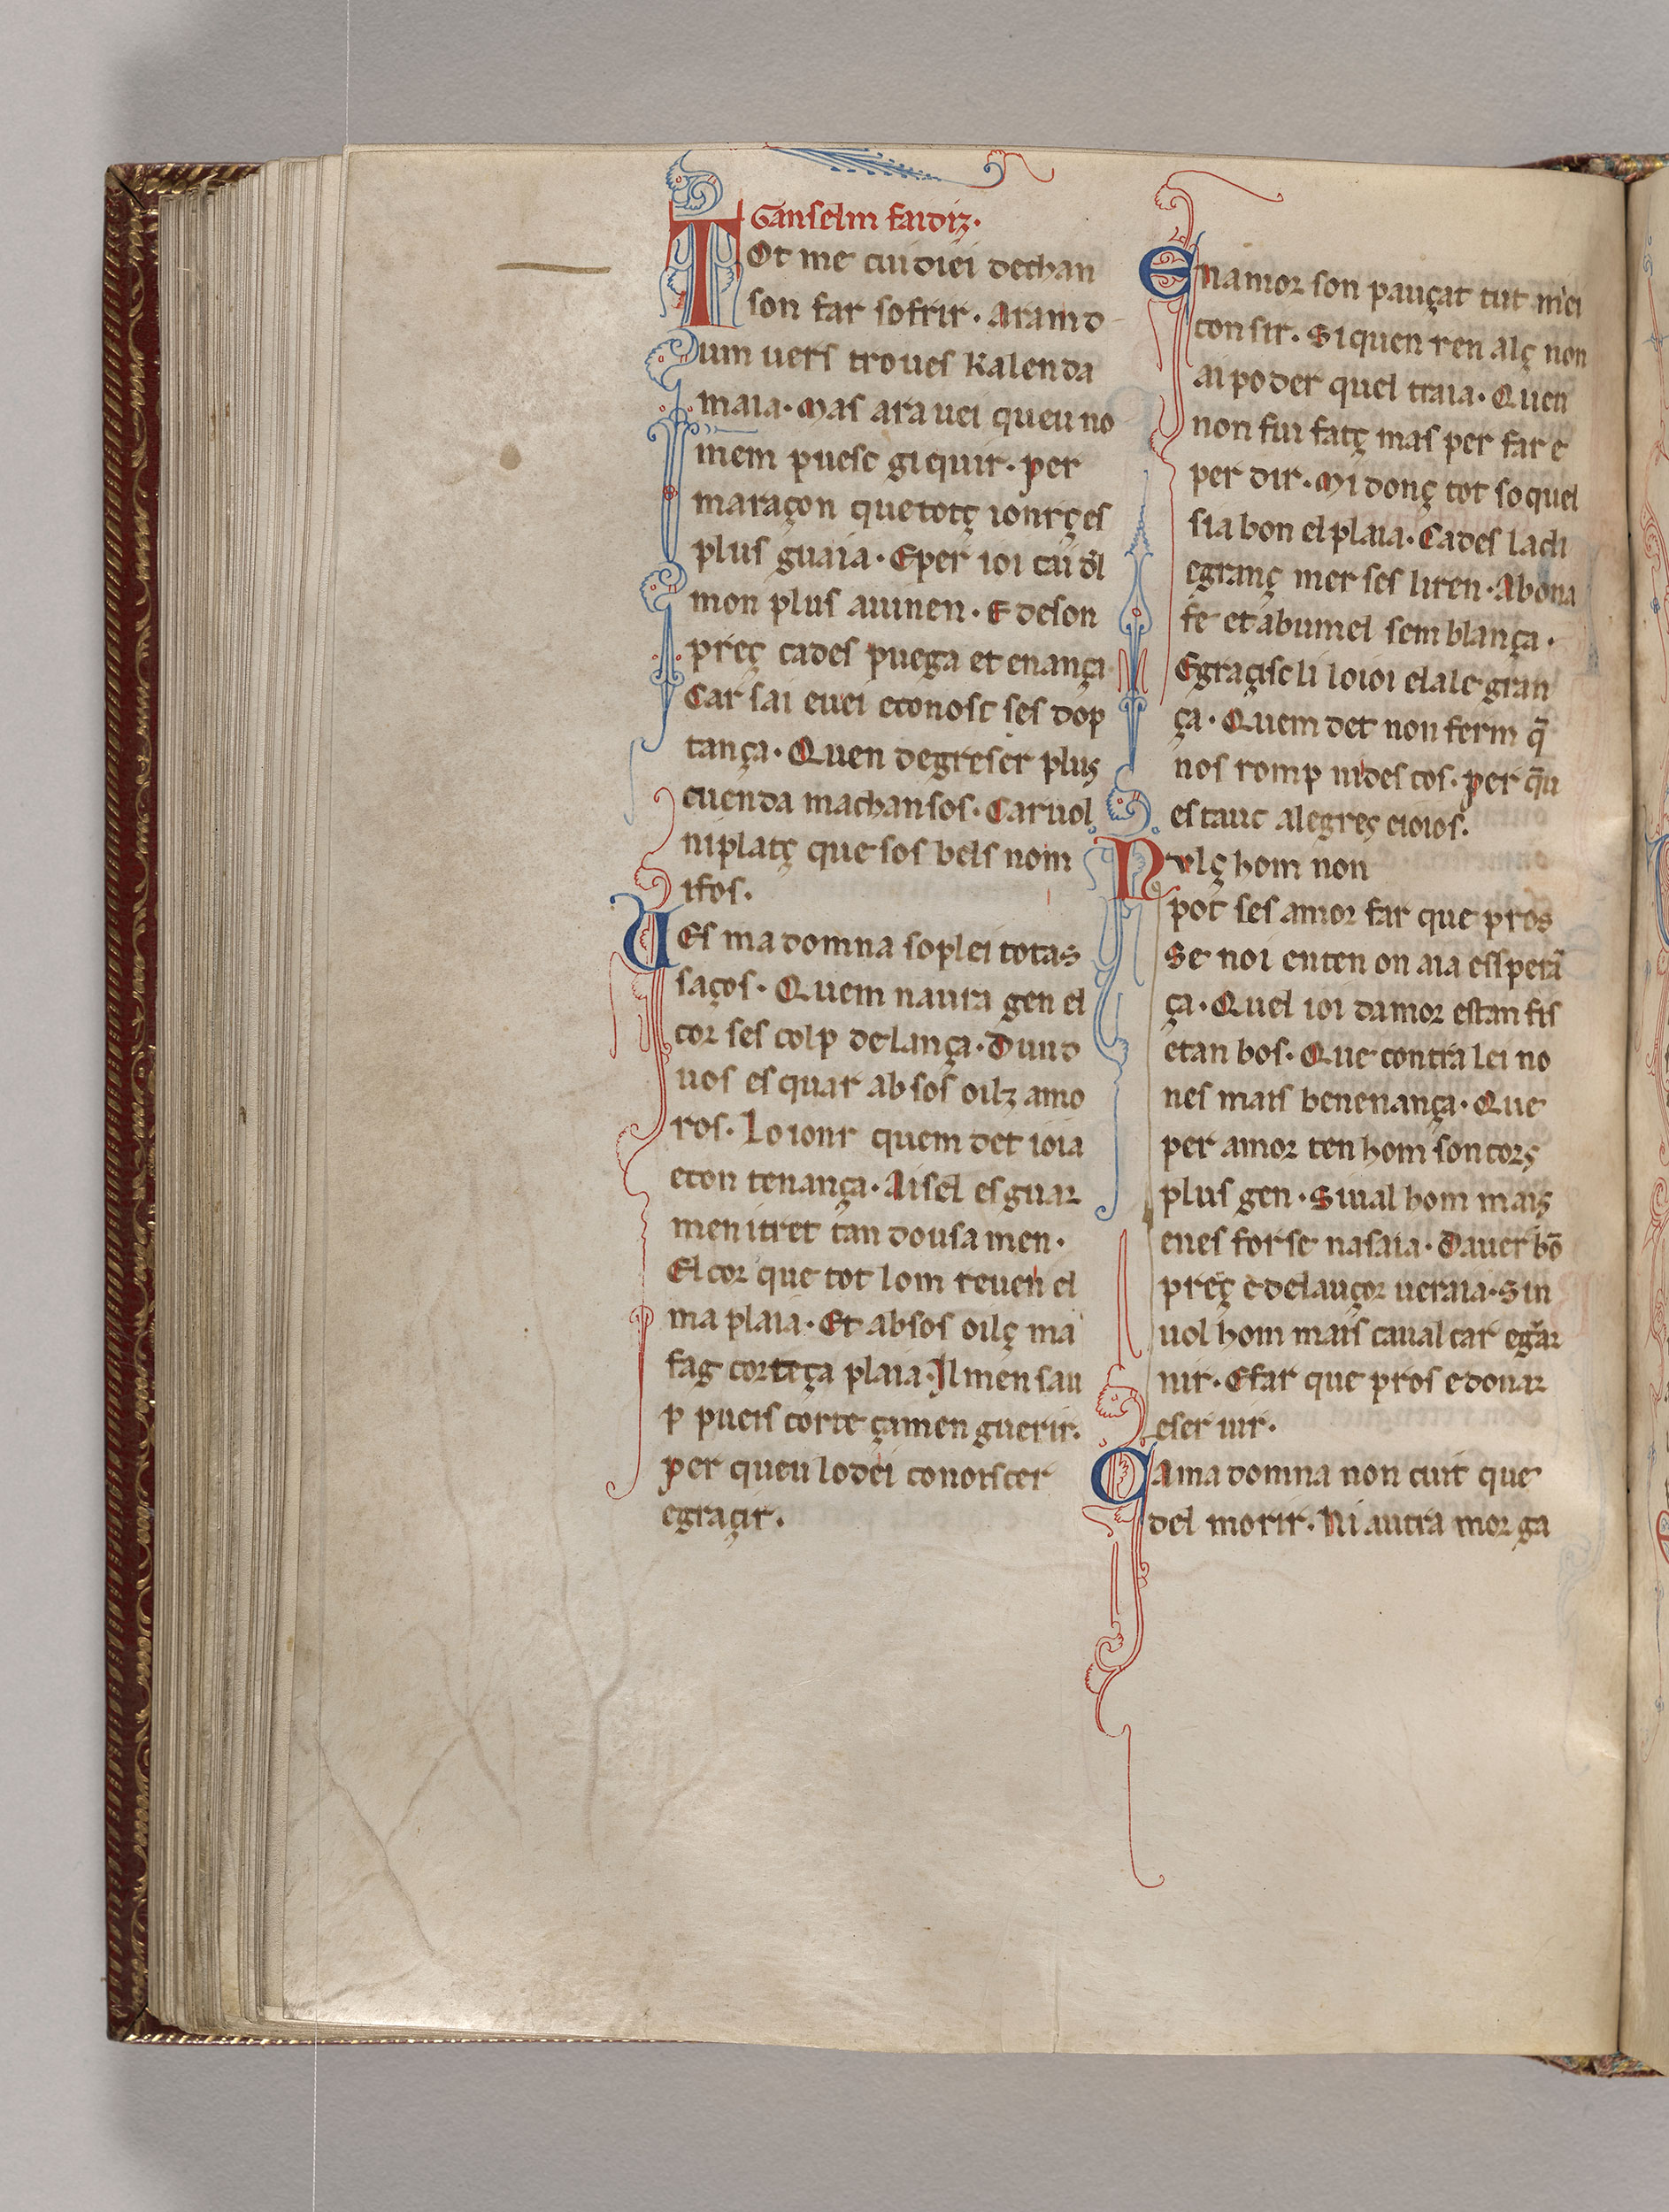 Ganselm faidiz.
Tot me cuidiei dechan
son far sofrir. Aramo
um uers troues kalenda
maia. Mas ara uei queu no
mem puesc giquir. per
maraçon quetotç iorrçes
plus guaia. Eper ioi cui dl
mon plus auinen. E deson
preç cades puega et enança
Car sai euei econosc ses dop
tança. Quen degreser plus
cuenda machansos. Caruol
niplatç que sos bels nom
ifos.
Ves ma domna soplei totas
saços. Quem naura gen el
cor ses colp delança. Dun d
uos esquar ab sos oilz amo
ros. Lo iorr quem det ioia
econ tenança. Aisel esguar
men itret tan dousa men.
El cor que tot lom reuen el
ma plaia. Et absos oilç ma
fag corteça plaia. Il men sau
p pueis corte çamen guerir.
per queu lodei conoiscer
egraçir.
En amor son pauçat tut miei
consir. Si quen ren alç non
ai poder quel traia. Quen
non fui fatç mas per far e
per dir. Mi donç tot so quel
sia bon el plaia. Cades lach
egranç mer ses liren. Abona
fe et abumel sem blança.
Egraçisc li loioi elale gran
ça. Quem det non ferm q̄
nos romp nides cos. per q̄u
estauc alegreç eioios.
Nulç hom non
poc ses amor far que pros
Se noi enten on aia essperā
ça. Quel ioi damor estan fis
etan bos. Que contra lei no
nes mais benenança. Que
per amor ten hom son cors
plus gen. Siual hom mais
enes forse nasaia. Dauer bō
preç e delauçor ueraia. Sin
uol hom mais caualcar egar
nir. Efar que pros edonar
eser uir.
Ca ma domna non cuit que
del morir. Ni autra mor ga